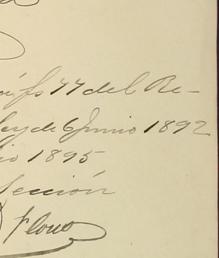 fs 77 del Re-
ley de 6 Junio 1892
io 1895
Sección
Flores